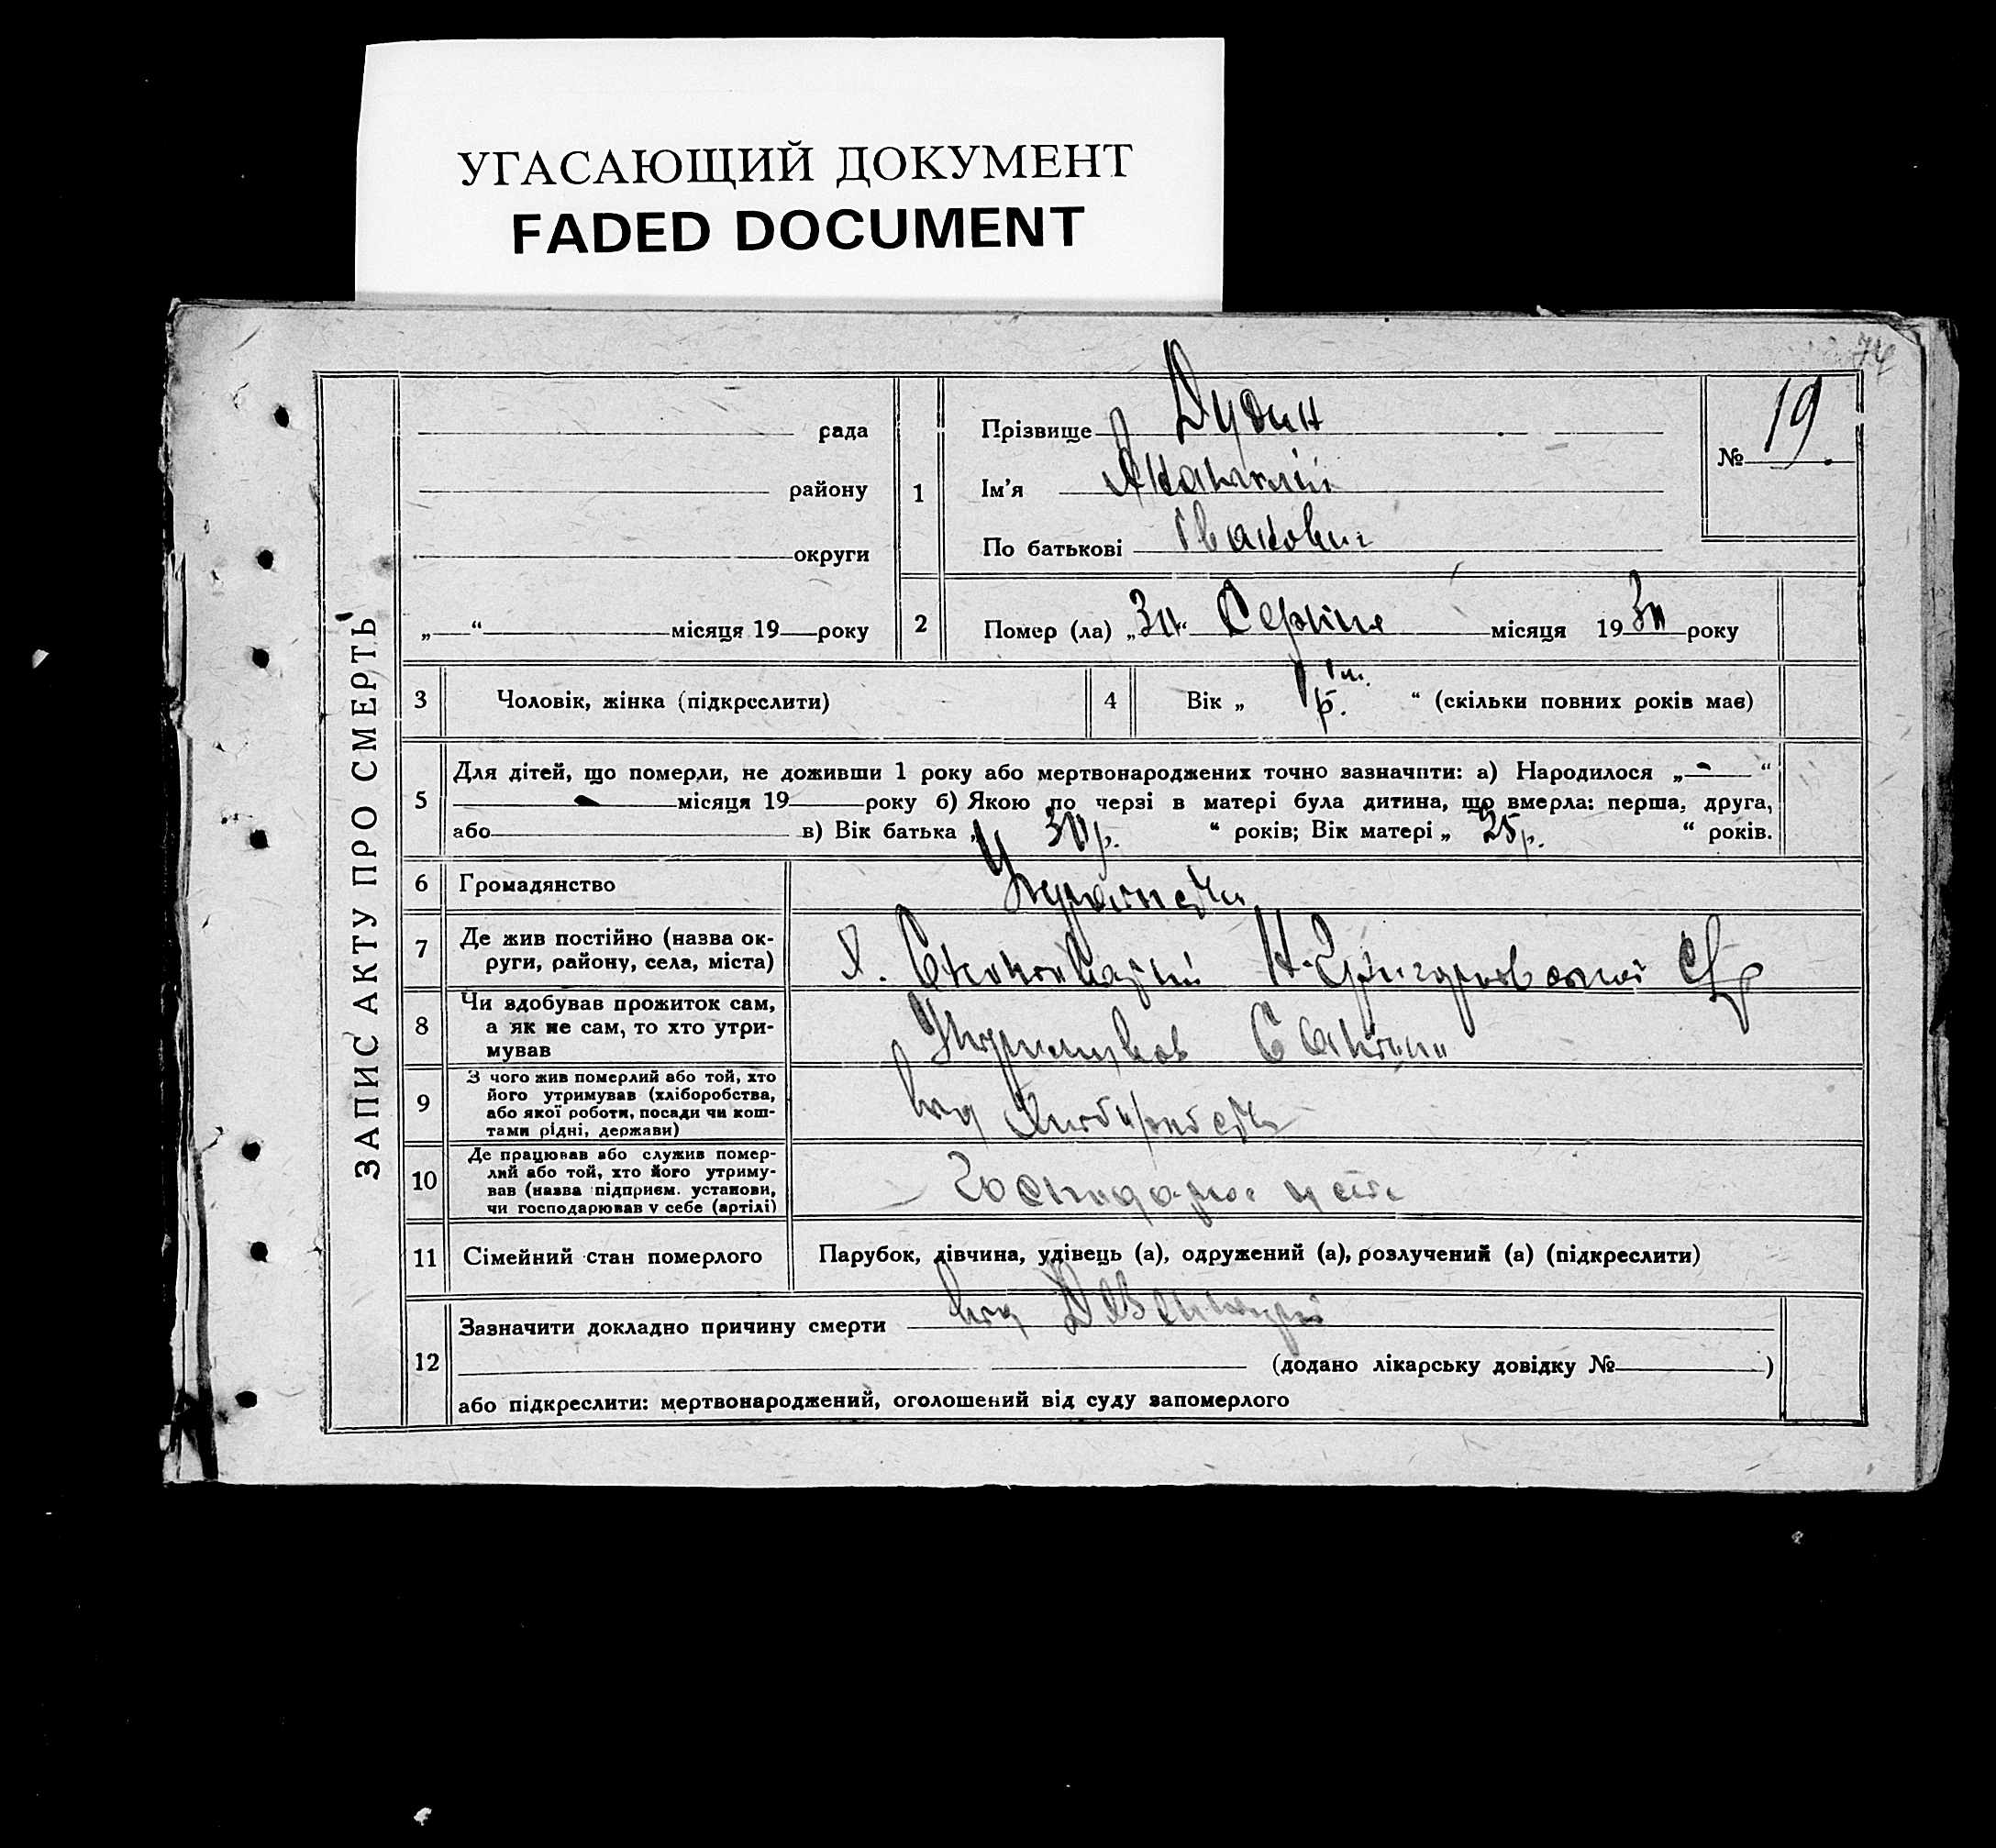 УГАСАЮЩИЙ ДОКУМЕНТ
FADED DOCUMENT
74
ЗАПИС АКТУ ПРО СМЕРТЬ
рада
району
округи
„ “ місяця 19 року
1
Прізвище Дудин
Ім'я
По батькові Іванович
№ 19.
2
Помер (ла) „30“ Серпня місяця 1930 року
3
Чоловік, жінка (підкреслити)
4
Вік „ “ (скільки повних років має)
5
Для дітей, що померли, не доживши 1 року або мертвонароджених точно зазначити: а) Народилося „-“
- місяця 19 року б) Якою по черзі в матері була дитина, що вмерла: перша, друга,
або в) Вік батька „ 30 р. “ років; Вік матері „ 25 р. “ років.
6
Громадянство
7
Де жив постійно (назва ок-
руги, району, села, міста)
8
Чи здобував прожиток сам,
а як не сам, то хто утри-
мував
9
З чого жив померлий або той, хто
його утримував (хліборобства,
або якої роботи, посади чи кош-
тами рідні, держави)
10
Де працював або служив помер-
лий або той, хто його утриму-
вав (назва підприєм. установи,
чи господарював у себе (артілі)
11
Сімейний стан померлого
Парубок, дівчина, удівець (а), одружений (а), розлучений (а) (підкреслити)
12
Зазначити докладно причину смерти
(додано лікарську довідку № )
або підкреслити: мертвонароджений, оголошений від суду запомерлого